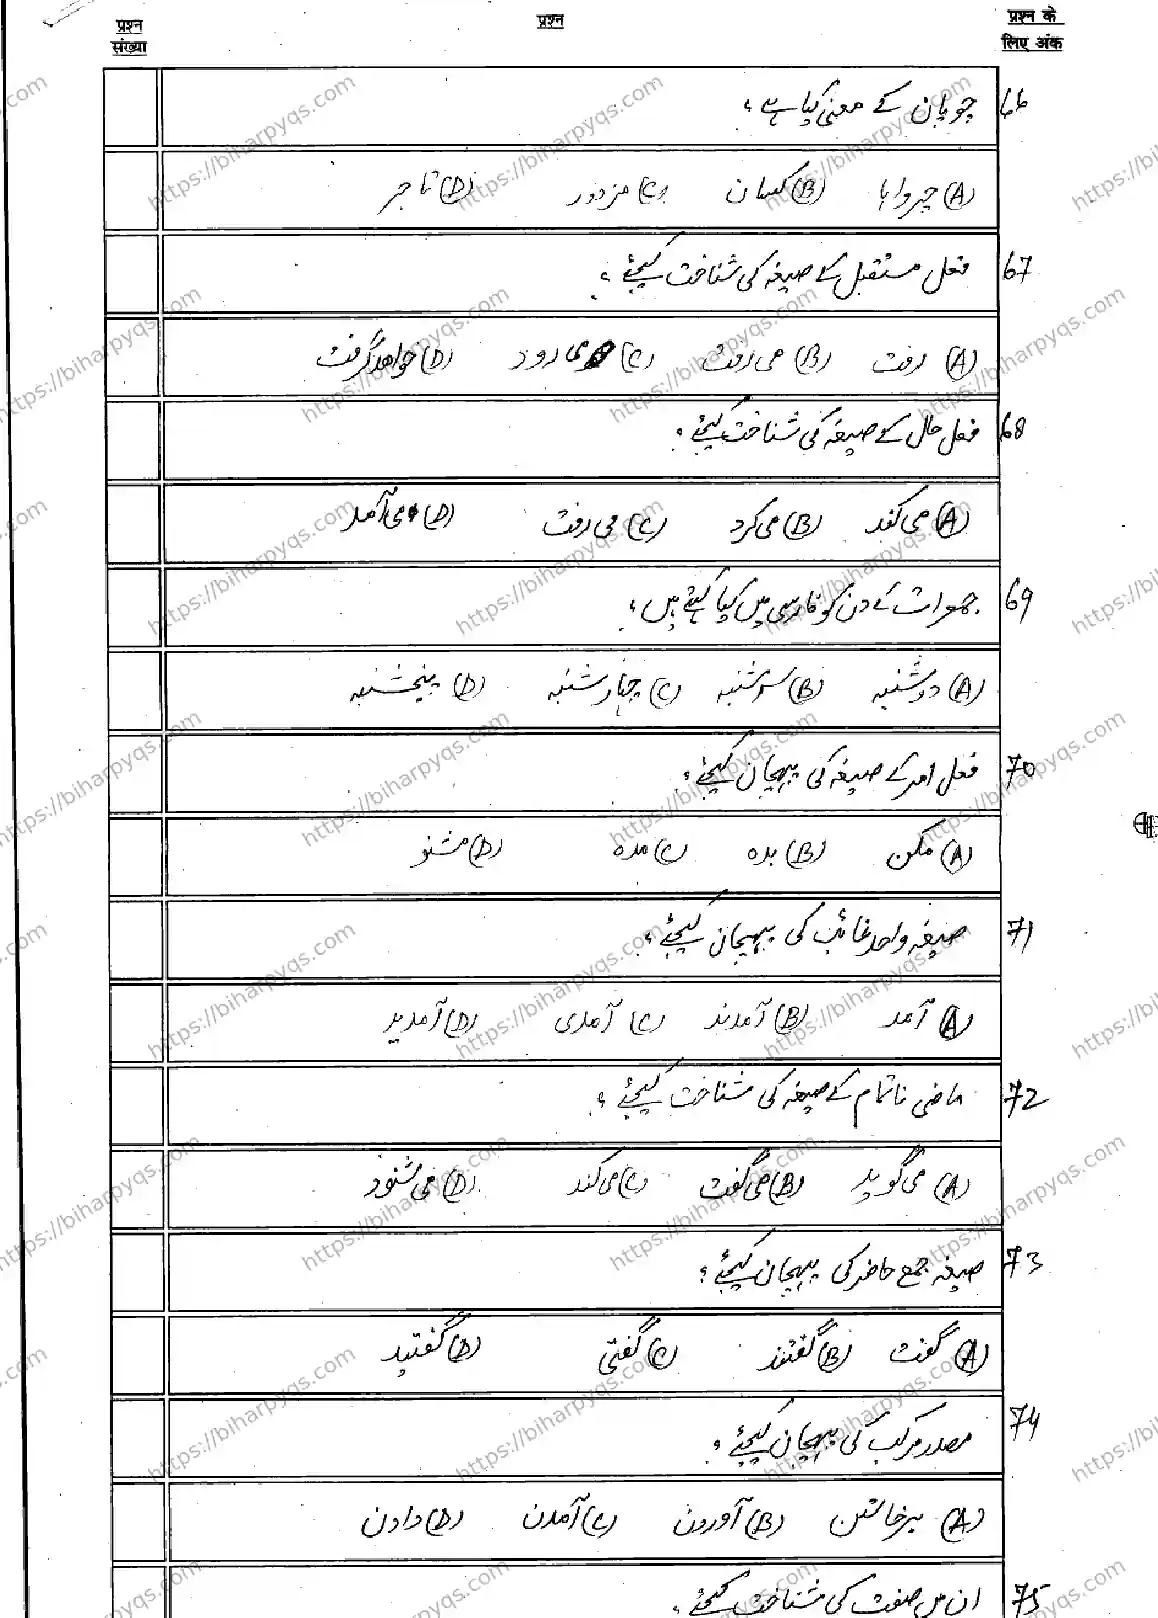 प्रश्न संख्या
प्रश्न
प्रश्न के लिए अंक
66 چوپان کے معنی کیا ہے؟
(A) چرواہا (B) کسان (C) مزدور (D) تاجر
67 فعل مستقبل کے صیغہ کی شناخت کیجئے؟
(A) رفت (B) می رفت (C) می رود (D) خواہد گرفت
68 فعل حال کے صیغہ کی شناخت کیجئے؟
(A) می کند (B) می کرد (C) می رفت (D) می آمد
69 جمعرات کے دن کو فارسی میں کیا کہتے ہیں؟
(A) دوشنبہ (B) سہ شنبہ (C) چہار شنبہ (D) پنجشنبہ
70 فعل امر کے صیغہ کی پہچان کیجئے؟
(A) مکن (B) بدہ (C) مدہ (D) مشنو
71 صیغہ واحد غائب کی پہچان کیجئے؟
(A) آمد (B) آمدند (C) آمدی (D) آمدید
72 ماضی ناتمام کے صیغہ کی شناخت کیجئے؟
(A) می گوید (B) می گفت (C) می کند (D) می شنود
73 صیغہ جمع حاضر کی پہچان کیجئے؟
(A) گفت (B) گفتند (C) گفتی (D) گفتید
74 مصدر مرکب کی پہچان کیجئے؟
(A) برخاستن (B) آوردن (C) آمدن (D) دادن
75 ان میں صفت کی شناخت کیجئے؟
https://biharpyqs.com